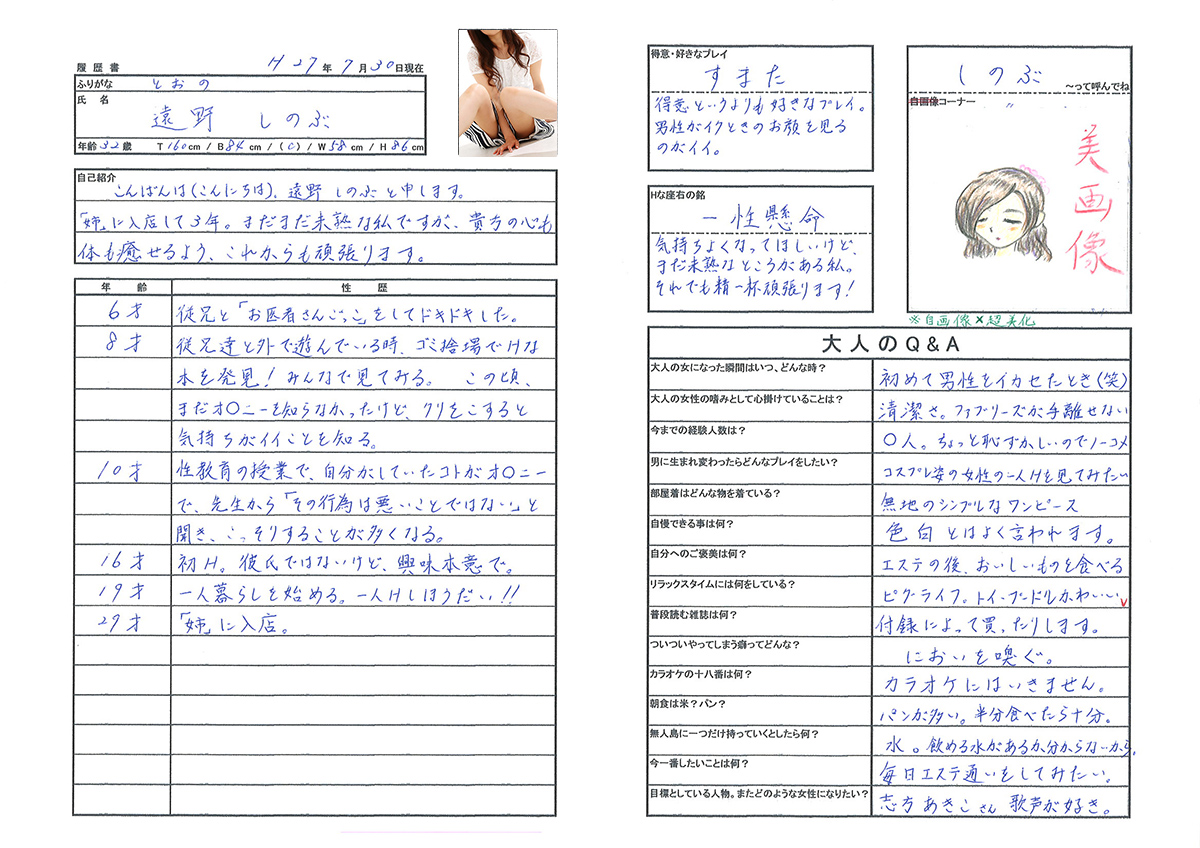 履歴書 H27年7月30日現在
ふりがな とおの
氏名 遠野 しのぶ
年齢32歳 T160cm / B84cm / (C) / W58cm / H86cm
自己紹介
こんばんは(こんにちは)、遠野 しのぶと申します。
「姉」に入店して3年。まだまだ未熟な私ですが、貴方の心も
体も癒せるよう、これからも頑張ります。
年齢 性歴
19才 一人暮らしを始める。一人Hしほうだい!!
29才 「姉」に入店。
得意・好きなプレイ
すまた
得意というよりも好きなプレイ。
男性がイクときのお顔を見る
のがイイ。
Hな座右の銘
一性懸命
気持ちよくなってほしいけど、
まだ未熟なところがある私。
それでも精一杯頑張ります!
しのぶ
〜って呼んでね
自画像コーナー
美画像
※自画像×超美化
大人のQ&A
大人の女になった瞬間はいつ、どんな時? 初めて男性をイカせたとき(笑)
大人の女性の嗜みとして心掛けていることは? 清潔さ。ファブリーズが手離せない
今までの経験人数は? 〇人。ちょっと恥ずかしいのでノーコメ
男に生まれ変わったらどんなプレイをしたい? コスプレ姿の女性の一人Hを見てみたい
部屋着はどんな物を着ている? 無地のシンプルなワンピース
自慢できる事は何? 色白とはよく言われます。
自分へのご褒美は何? エステの後、おいしいものを食べる
リラックスタイムには何をしている? ピグライフ。トイ・プードルかわい〜い
普段読む雑誌は何? 付録によって買ったりします。
ついついやってしまう癖ってどんな? においを嗅ぐ。
カラオケの十八番は何? カラオケにはいきません。
朝食は米?パン? パンが多い。半分食べたら十分。
無人島に一つだけ持っていくとしたら何? 水。飲める水があるか分からないから。
今一番したいことは何? 毎日エステ通いをしてみたい。
目標としている人物。またどのような女性になりたい? 志方あきこさん 歌声が好き。